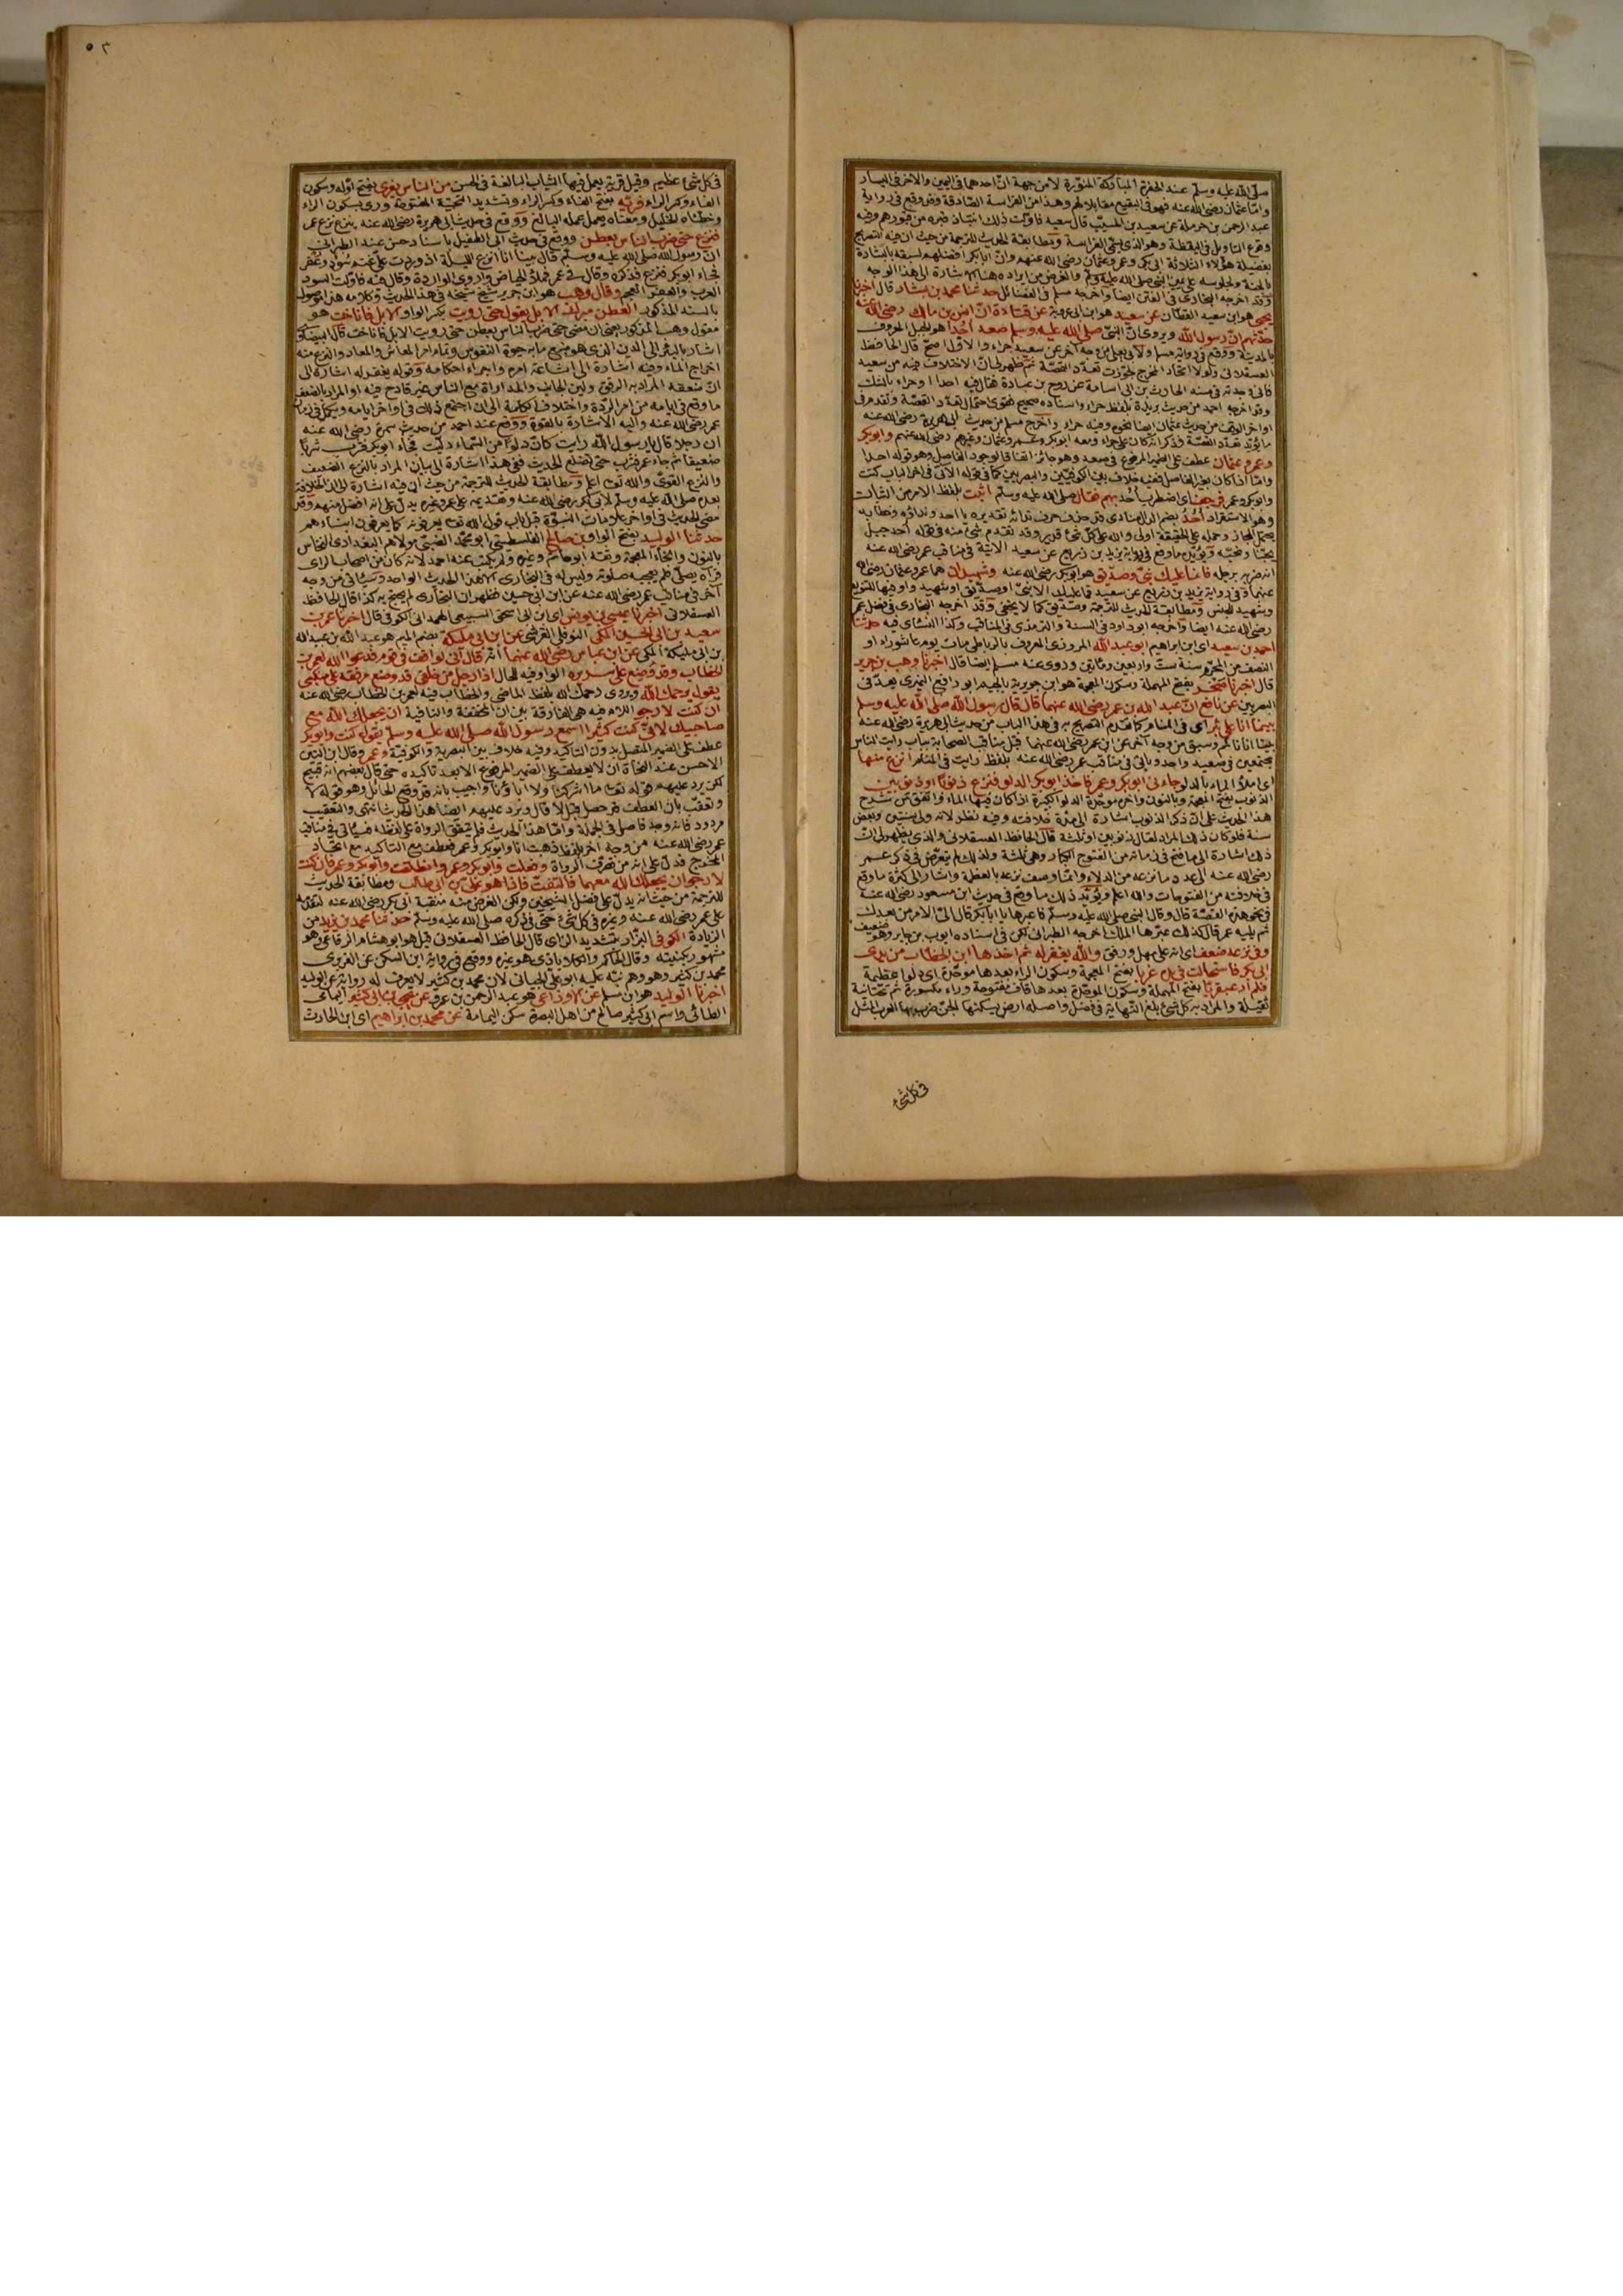 صلى الله عليه وسلم عند الحفرة المباركة المنورة لا من جهة ان احدهما في اليمين والآخر في اليسار
واما عثمان رضي الله عنه فهو في البقيع مقابلا لهم وهذا من الفراسة الصادقة وقد وقع في رواية
عبد الرحمن بن حرملة عن سعيد بن المسيب قال سعيد فاولت ذلك انتباذ قبره من قبورهم وفيه
وقوع التاويل في اليقظة وهو الذي يسمى الفراسة ومطابقة الحديث للترجمة من حيث ان فيه التصريح
بفضيلة هؤلاء الثلاثة ابي بكر وعمر وعثمان رضي الله عنهم وان ابا بكر افضلهم لسبقه بالبشارة
بالجنة ولجلوسه على يمين النبي صلى الله عليه وسلم والغرض من ايراده هنا الاشارة الى هذا الوجه
وقد اخرجه البخاري في الفتن ايضا واخرجه مسلم في الفضائل حدثنا محمد بن بشار قال اخبرنا
يحيى هو ابن سعيد القطان عن سعيد هو ابن ابي عروبة عن قتادة ان انس بن مالك رضي الله عنه
حدثهم ان رسول الله ويروى ان النبي صلى الله عليه وسلم صعد احدا هو الجبل المعروف
بالمدينة ووقع في رواية مسلم ولابي يعلى من وجه آخر عن سعيد حراء والاول اصح قال الحافظ
العسقلاني ولولا اتحاد المخرج لجوزت تعدد القصة ثم ظهر لي ان الاختلاف فيه من سعيد
فاني وجدته في مسند الحارث بن ابي اسامة عن روح بن عبادة فقال فيه احدا او حراء بالشك
وقد اخرجه احمد من حديث بريدة بلفظ حراء واسناده صحيح فقوى احتمال تعدد القصة وتقدم في
اواخر الوقف من حديث عثمان ايضا نحوه وفيه حراء واخرج مسلم من حديث ابي هريرة رضي الله عنه
ما يؤيد تعدد القصة فذكر انه كان على حراء ومعه ابو بكر وعمر وعثمان وغيرهم رضي الله عنهم وابو بكر
وعمر وعثمان عطف على الضمير المرفوع في صعد وهو جائز اتفاقا لوجود الفاصل وهو قوله احدا
واما اذا كان بغير الفاصل ففيه خلاف بين الكوفيين والبصريين كما في قوله الآتي في آخر الباب كنت
وابو بكر وعمر فرجف اي اضطرب احد بهم فقال صلى الله عليه وسلم اثبت بلفظ الامر من الثبات
وهو الاستقرار احد بضم الدال منادى قد حذف حرف ندائه تقديره يا احد ونداؤه وخطابه
يحتمل المجاز وحمله على الحقيقة اولى والله على كل شيء قدير وقد تقدم شيء منه في قوله احد جبل
يحبنا ونحبه ويؤيده ما وقع في رواية يزيد بن زريع عن سعيد الآتية في مناقب عمر رضي الله عنه
انه ضربه برجله فانما عليك نبي وصديق هو ابو بكر رضي الله عنه وشهيدان هما عمر وعثمان رضي الله
عنهما وفي رواية يزيد بن زريع عن سعيد فما عليك الا نبي او صديق او شهيد واو فيها للتنويع
وشهيد للجنس ومطابقة الحديث للترجمة وصديق كما لا يخفى وقد اخرجه البخاري في فضل عمر
رضي الله عنه ايضا واخرجه ابو داود في السنة والترمذي في المناقب وكذا النسائي فيه حدثنا
احمد بن سعيد اي ابن ابراهيم ابو عبد الله المروزي المعروف بالرباطي مات يوم عاشوراء او
النصف من المحرم سنة ست واربعين ومائتين وروى عنه مسلم ايضا قال اخبرنا وهب بن جرير
قال اخبرنا صخر بفتح المهملة وسكون المعجمة هو ابن جويرية بالجيم ابو رافع النميري يعد في
البصريين عن نافع ان عبد الله بن عمر رضي الله عنهما قال قال رسول الله صلى الله عليه وسلم
بينما انا على بئر اي في المنام كما تقدم التصريح به في هذا الباب من حديث ابي هريرة رضي الله عنه
بينا انا نائم وسبق من وجه آخر عن ابن عمر رضي الله عنهما قبل مناقب الصحابة بباب رايت الناس
مجتمعين في صعيد واحد وياتي في مناقب عمر رضي الله عنه بلفظ رايت في المنام انزع منها
اي املأ الماء بالدلو جاءني ابو بكر وعمر فاخذ ابو بكر الدلو فنزع ذنوبا او ذنوبين
الذنوب بفتح المعجمة وبالنون وآخره موحدة الدلو الكبيرة اذا كان فيها الماء واتفق من شرح
هذا الحديث على ان ذكر الذنوب اشارة الى مدة خلافته وفيه نظر لانه ولي سنتين وبعض
سنة فلو كان ذلك المراد لقال ذنوبين او ثلثة قال الحافظ العسقلاني والذي يظهر لي ان
ذلك اشارة الى ما فتح في زمانه من الفتوح الكبار وهي ثلثة ولذلك لم يتعرض في ذكر عمر
رضي الله عنه الى عدد ما نزعه من الدلاء وانما وصف نزعه بالعظمة واشار الى كثرة ما وقع
في خلافته من الفتوحات والله اعلم ويؤيد ذلك ما وقع في حديث ابن مسعود رضي الله عنه
في نحو هذه القصة قال وقال النبي صلى الله عليه وسلم فاعبرها يا ابا بكر قال الي الامر من بعدك
ثم يليه عمر قال كذلك عبرها الملك اخرجه الطبراني لكن في اسناده ايوب بن جابر وهو ضعيف
وفي نزعه ضعف اي انه على مهل ورفق والله يغفر له ثم اخذها ابن الخطاب من يدي
ابي بكر فاستحالت في يده غربا بفتح المعجمة وسكون الراء بعدها موحدة اي دلوا عظيمة
فلم ار عبقريا بفتح المهملة وسكون الموحدة بعدها قاف مفتوحة وراء مكسورة ثم تحتانية
ثقيلة والمراد به كل شيء بلغ النهاية في فضل واصله ارض يسكنها الجن ضرب بها العرب المثل
في كل شيء
٥٣
في كل شيء عظيم وقيل قرية يعمل فيها الثياب البالغة في الحسن من الناس يفري بفتح اوله وسكون
الفاء وكسر الراء فريه بفتح الفاء وكسر الراء وتشديد التحتية المفتوحة وروي بسكون الراء
وخطأه الخليل ومعناه يعمل عمله البالغ ووقع في حديث ابي هريرة رضي الله عنه ينزع نزع عمر
فنزع حتى ضرب الناس بعطن ووقع في حديث ابي الطفيل باسناد حسن عند الطبراني
ان رسول الله صلى الله عليه وسلم قال بينا انا انزع الليلة اذ وردت علي غنم سود وعفر
فجاء ابو بكر فنزع فذكره وقال في عمر فملأ الحياض واروى الواردة وقال فيه فاولت السود
العرب والعفر العجم وقال وهب هو ابن جرير شيخ شيخه في هذا الحديث وكلامه هذا موصول
بالسند المذكور العطن مبرك الابل يقول حتى رويت بكسر الواو الابل فاناخت هو
مقول وهب المذكور يعني ان معنى حتى ضرب الناس بعطن حتى رويت الابل فاناخت قال البيضاوي
اشار بالبئر الى الدين الذي هو منبع ما به حيوة النفوس وتمام امر المعاش والمعاد والنزع منه
اخراج الماء وفيه اشارة الى اشاعة امره واجراء احكامه وقوله يغفر له اشارة الى
ان ضعفه المراد به الرفق ولين الجانب والمداراة مع الناس غير قادح فيه او المراد بالضعف
ما وقع في ايامه من امر الردة واختلاف الكلمة الى ان اجتمع ذلك في اواخر ايامه ويكمل في زمان
عمر رضي الله عنه واليه الاشارة بالقوة ووقع عند احمد من حديث سمرة رضي الله عنه
ان رجلا قال يا رسول الله رايت كان دلوا من السماء دليت فجاء ابو بكر فشرب شربا
ضعيفا ثم جاء عمر فشرب حتى تضلع الحديث ففي هذا اشارة الى بيان المراد بالنزع الضعيف
والنزع القوي والله تعالى اعلم ومطابقة الحديث للترجمة من حيث ان فيه اشارة الى ان الخلافة
بعده صلى الله عليه وسلم لابي بكر رضي الله عنه وتقديمه على عمر وغيره يدل على انه افضل منهم وقد
مضى الحديث في اواخر علامات النبوة قبل باب قول الله تعالى يعرفونه كما يعرفون ابناءهم
حدثنا الوليد بفتح الواو بن صالح الفلسطيني ابو محمد الضبي مولاهم البغدادي النخاس
بالنون والخاء المعجمة وثقه ابو حاتم وغيره ولم يكتب عنه احمد لانه كان من اصحاب الراي
فرآه يصلي فلم يعجبه صلوته وليس له في البخاري الا هذا الحديث الواحد وسياتي من وجه
آخر في مناقب عمر رضي الله عنه عن ابن ابي حسين فظهر ان البخاري لم يحتج به كذا قال الحافظ
العسقلاني اخبرنا عيسى بن يونس اي ابن ابي اسحق السبيعي الهمداني الكوفي قال اخبرنا عمر بن
سعيد بن ابي الحسين المكي النوفلي القرشي عن ابن ابي مليكة بضم الميم هو عبد الله بن عبيد الله
بن ابي مليكة المكي عن ابن عباس رضي الله عنهما انه قال اني لواقف في قوم فدعوا الله لعمر بن
الخطاب وقد وضع على سريره الواو فيه للحال اذا رجل من خلفي قد وضع مرفقه على منكبي
يقول يرحمك الله ويروى رحمك الله بلفظ الماضي والخطاب فيه لعمر بن الخطاب رضي الله عنه
ان كنت لارجو اللام فيه هي الفارقة بين ان المخففة والنافية ان يجعلك الله مع
صاحبيك لاني كثيرا كنت اسمع رسول الله صلى الله عليه وسلم يقول كنت وابو بكر
عطف على الضمير المتصل بدون التاكيد وفيه خلاف بين البصرية والكوفية وعمر وقال ابن التين
الاحسن عند النحاة ان لا يعطف على الضمير المرفوع الا بعد تاكيده حتى قال بعضهم انه قبيح
لكن يرد عليهم قوله تعالى ما اشركنا ولا اباؤنا واجيب بانه قد وقع الحائل وهو قوله لا
وتعقب بان العطف قد حصل قبل لا قال ويرد عليهم ايضا هذا الحديث انتهى والتعقيب
مردود فانه وجد فاصل في الجملة واما هذا الحديث فلم يتفق الرواة على لفظه فسياتي في مناقب
عمر رضي الله عنه من وجه آخر بلفظ ذهبت انا وابو بكر وعمر فعطف مع التاكيد مع اتحاد
المخرج فدل على انه من تصرف الرواة وفعلت وابو بكر وعمر وانطلقت وابو بكر وعمر فان كنت
لارجو ان يجعلك الله معهما فالتفت فاذا هو علي بن ابي طالب ومطابقة الحديث
للترجمة من حيث انه يدل على فضل الشيخين ولكن الغرض منه منقبة ابي بكر رضي الله عنه لتقدمه
على عمر رضي الله عنه وغيره في كل شيء حتى في ذكره صلى الله عليه وسلم حدثنا محمد بن يزيد من
الزيادة الكوفي البزار بتشديد الزاي قال الحافظ العسقلاني قيل هو ابو هشام الرفاعي وهو
مشهور بكنيته وقال الحاكم والكلاباذي هو غيره ووقع في رواية ابن السكن عن الفربري
محمد بن كثير وهو وهم نبه عليه ابو علي الجياني لان محمد بن كثير لا يعرف له رواية عن الوليد
اخبرنا الوليد هو ابن مسلم عن الاوزاعي هو عبد الرحمن بن عمرو عن يحيى بن ابي كثير اليمامي
الطائي واسم ابي كثير صالح من اهل البصرة سكن اليمامة عن محمد بن ابراهيم اي ابن الحارث